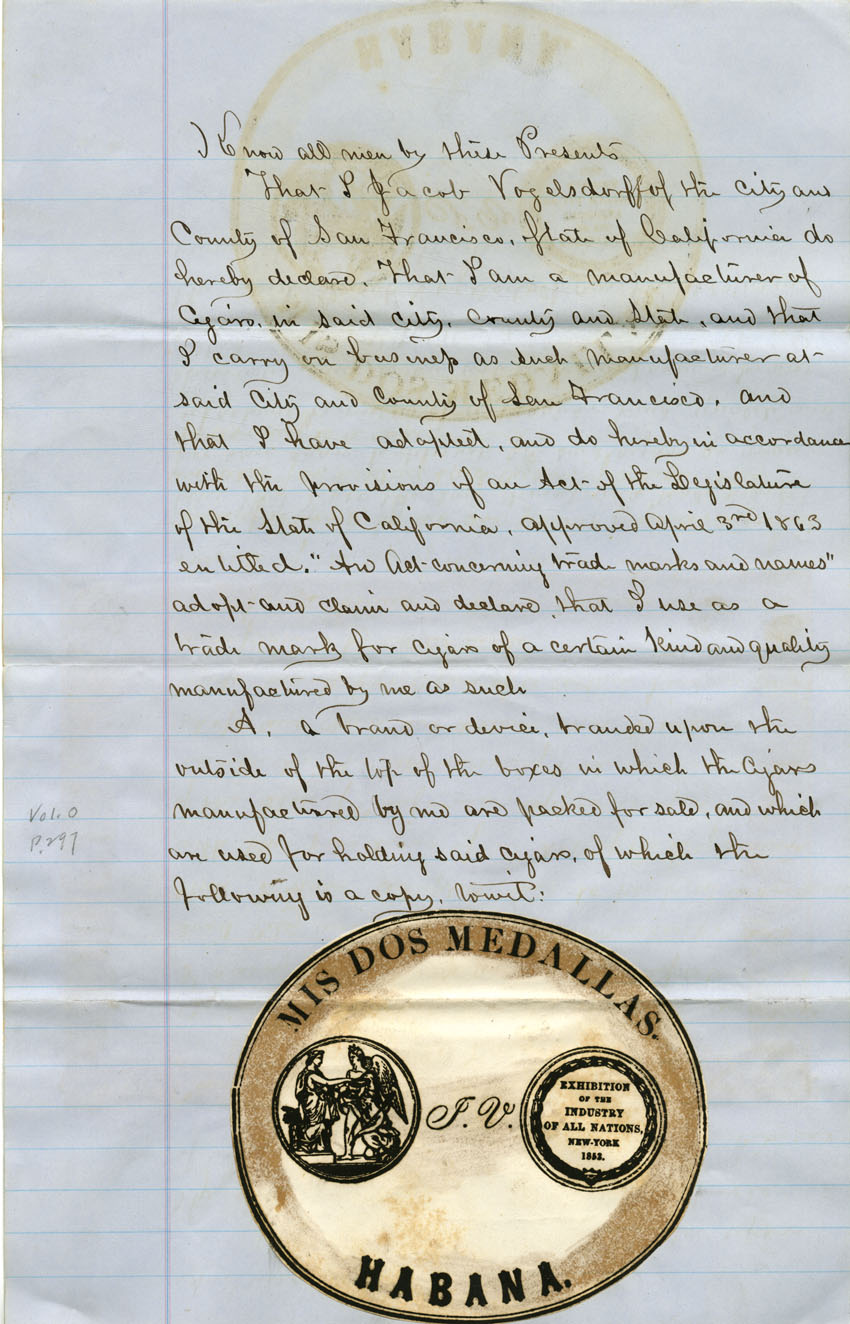 Know all men by these Presents
That I Jacob Vogelsdorff of the City and
County of San Francisco, State of California do
hereby declare, That I am a manufacturer of
Cigars, in said city, County and State, and that
I carry on business as such manufacturer at
said City and County of San Francisco, and
that I have adopted, and do hereby in accordance
with the provisions of an Act of the Legislature
of the State of California, approved April 3rd 1863
entitled. "An Act concerning trade marks and names"
adopt and claim and declare, that I use as a
trade mark for cigars of a certain Kind and quality
manufactured by me as such
A, a brand or device, branded upon the
outside of the top of the boxes in which the Cigars
manufactured by me are packed for sale, and which
are used for holding said cigars, of which the
following is a copy, towit:
Vol. O
P. 297
MIS DOS MEDALLAS.
J. V.
EXHIBITION
OF THE
INDUSTRY
OF ALL NATIONS,
NEW-YORK
1853.
HABANA.